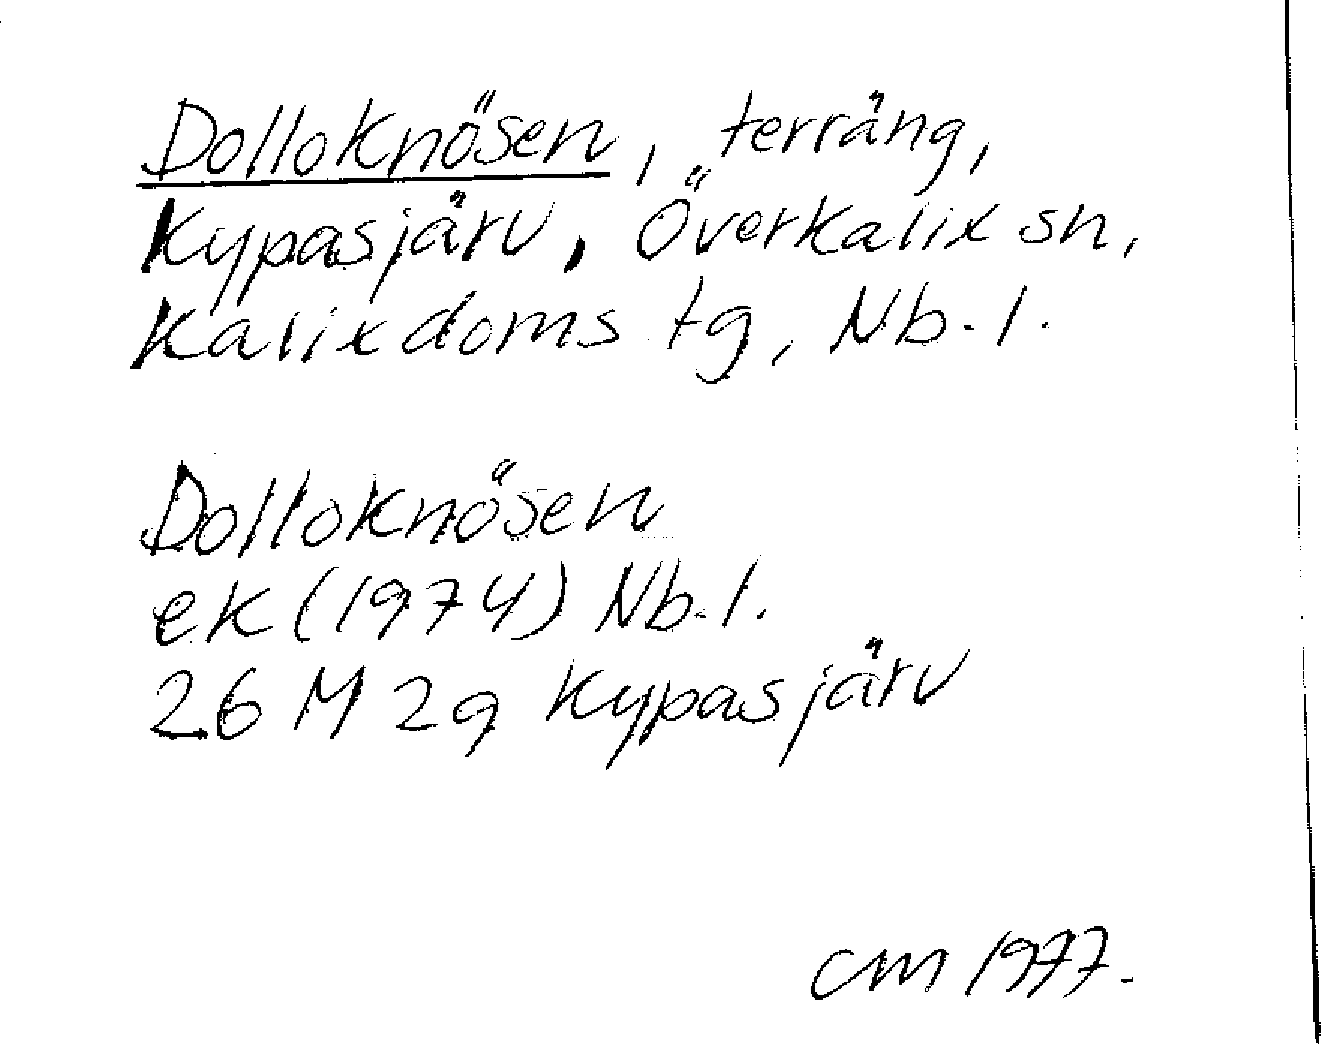 Dolloknösen, terräng,
Kypasjärv, Överkalix sn,
Kalixdoms tg, Nb. l.
Dolloknösen
ek (1974) Nb. l.
26 M 2g Kypasjärv
CM 1977.